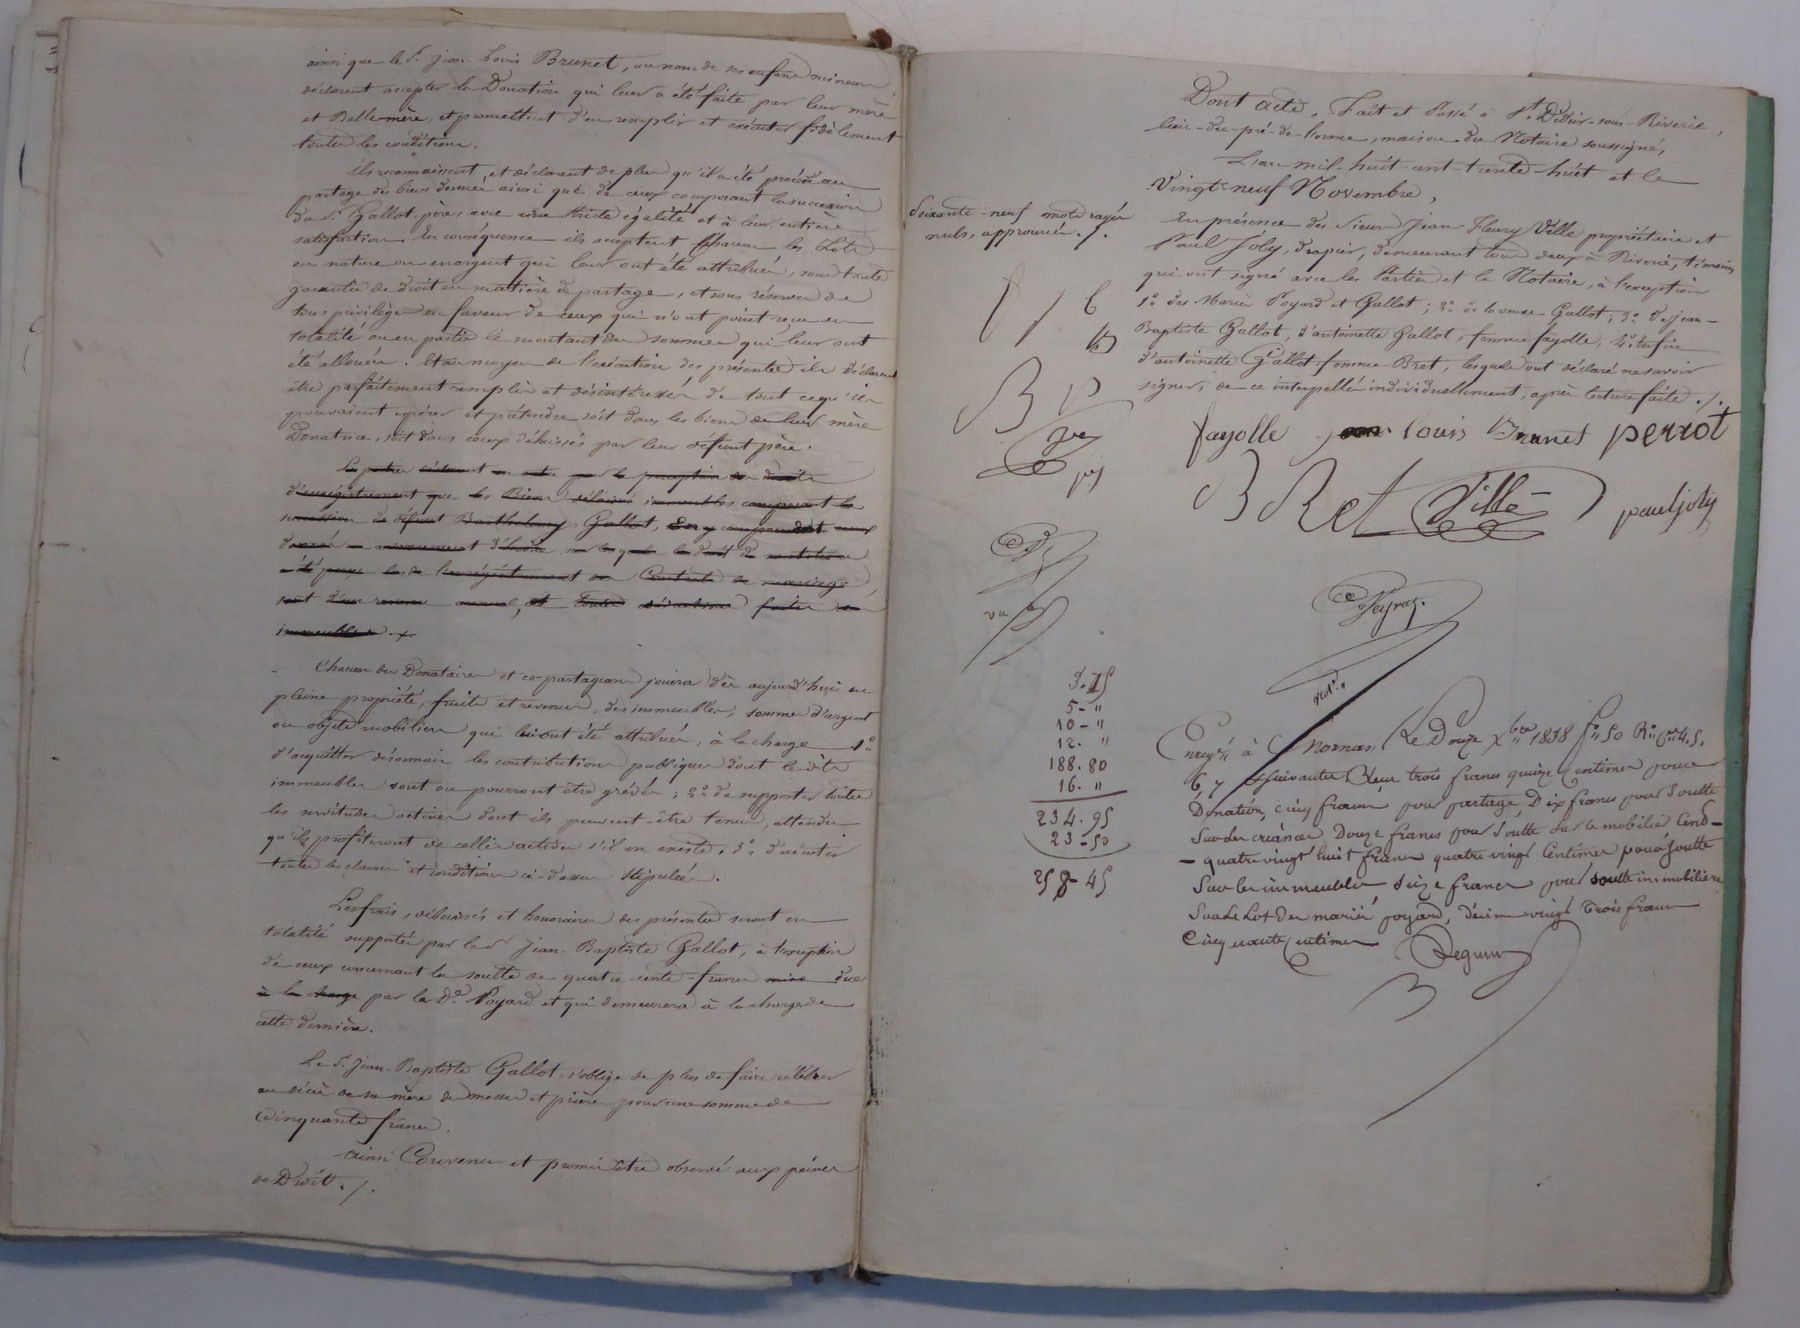 ainsi que le Sr. Jean Louis Brunet, au nom de ses enfans mineurs,
déclarent accepter la Donation qui leur a été faite par leur mère
et Belle-mère, et promettent d'en remplir et exécuter fidèlement
toutes les conditions.
Ils reconnaissent, et déclarent de plus qu'il a été procédé au
partage des biens donnés ainsi que de ceux composant la succession
du Sr. Gallot père, avec une stricte égalité et à leur entière
satisfaction. En conséquence ils acceptent chacun les Lots
en nature ou en argent qui leur ont été attribués, sous toute
garantie de droit en matière de partage, et sous réserve de
tous privilèges en faveur de ceux qui n'ont point reçu en
totalité ou en partie le montant des sommes qui leur ont
été allouées. Et au moyen de l'exécution des présentes ils déclarent
être parfaitement remplis et désintéressés de tout ce qu'ils
pouvaient espérer et prétendre soit dans les biens de leur mère
Donatrice, soit dans ceux délaissés par leur défunt père.
Les parties déclarent en outre pour la perception des droits
d'enregistrement que les Biens immeubles composant la
succession de défunt Barthelemy Gallot,
été perçu lors de l'enregistrement du Contrat de mariage
sont d'un revenu annuel, toutes déductions faites
immeubles ./.
Chacun des Donataires et co-partageans jouira dès aujourd'hui en
pleine propriété, fruits et revenus, des immeubles, sommes d'argent
ou objets mobiliers qui lui ont été attribués, à la charge 1°.
d'acquitter désormais les contributions publiques dont les dits
immeubles sont ou pourront être grévés; 2°. de supporter toutes
les servitudes actives dont ils peuvent être tenus, attendu
qu'ils profiteront de celles actives s'il en existe. 3°. d'exécuter
toutes les clauses et conditions ci-dessus stipulées.
Les frais, déboursés et honoraires des présentes seront en
totalité supportés par le Sr. Jean-Baptiste Gallot, à l'exception
de ceux concernant la soulte de quatre-cents francs mise due
à la charge par la De. Poyard et qui demeurera à la charge de
cette dernière.
Le Sr. Jean-Baptiste Gallot, s'oblige de plus de faire célébrer
au décès de sa mère des messes et prières pour une somme de
Cinquante francs.
Ainsi Convenu et promis être observé aux peines
de Droit. /.
Dont acte, Fait et Passé à St. Didier-sous-Riverie,
lieu-du-pré-de-l'orme, maison du Notaire soussigné,
L'an mil-huit-cent-trente-huit et le
Vingt-neuf Novembre,
En présence des Sieurs Jean Fleury Ville propriétaire et
Paul Joly, drapier, demeurant tous deux à Riverie, témoins
qui ont signé avec les Parties et le Notaire, à l'exception
1°. des Mariés Poyard et Gallot; 2°. de la veuve Gallot; 3°. de Jean-
Baptiste Gallot, d'antoinette Gallot, femme fayolle, 4°. enfin
d'antoinette Gallot femme Bret, lesquels ont déclaré ne savoir
signer, de ce interpellés individuellement, après lecture faite ./.
Soixante-neuf mots rayés
nuls, approuvé. /.
fayolle jean louis Brunet perrot
BRet Ville paul joly
Peyraz.
not.re
3.15
5 - "
10 - "
12. "
188. 80
16. "
234. 95
23 - 50
258 - 45
Enregré à Mornant Le Douze Xbre 1838 fo. 50 Ro. Ces. 4. 5.
6, 7 et suivantes Reçu trois francs quinze Centimes pour
Donation, cinq francs pour partage, Dix francs pour Soulte
Sur les créances Douze francs pour Soulte sur le mobilier Cent-
- quatre vingt huit francs quatre vingt Centimes pour soulte
Sur les immeubles Seize francs pour soulte immobilière
Sur le Lot des mariés poyard, décime vingt trois francs
Cinquante Centimes